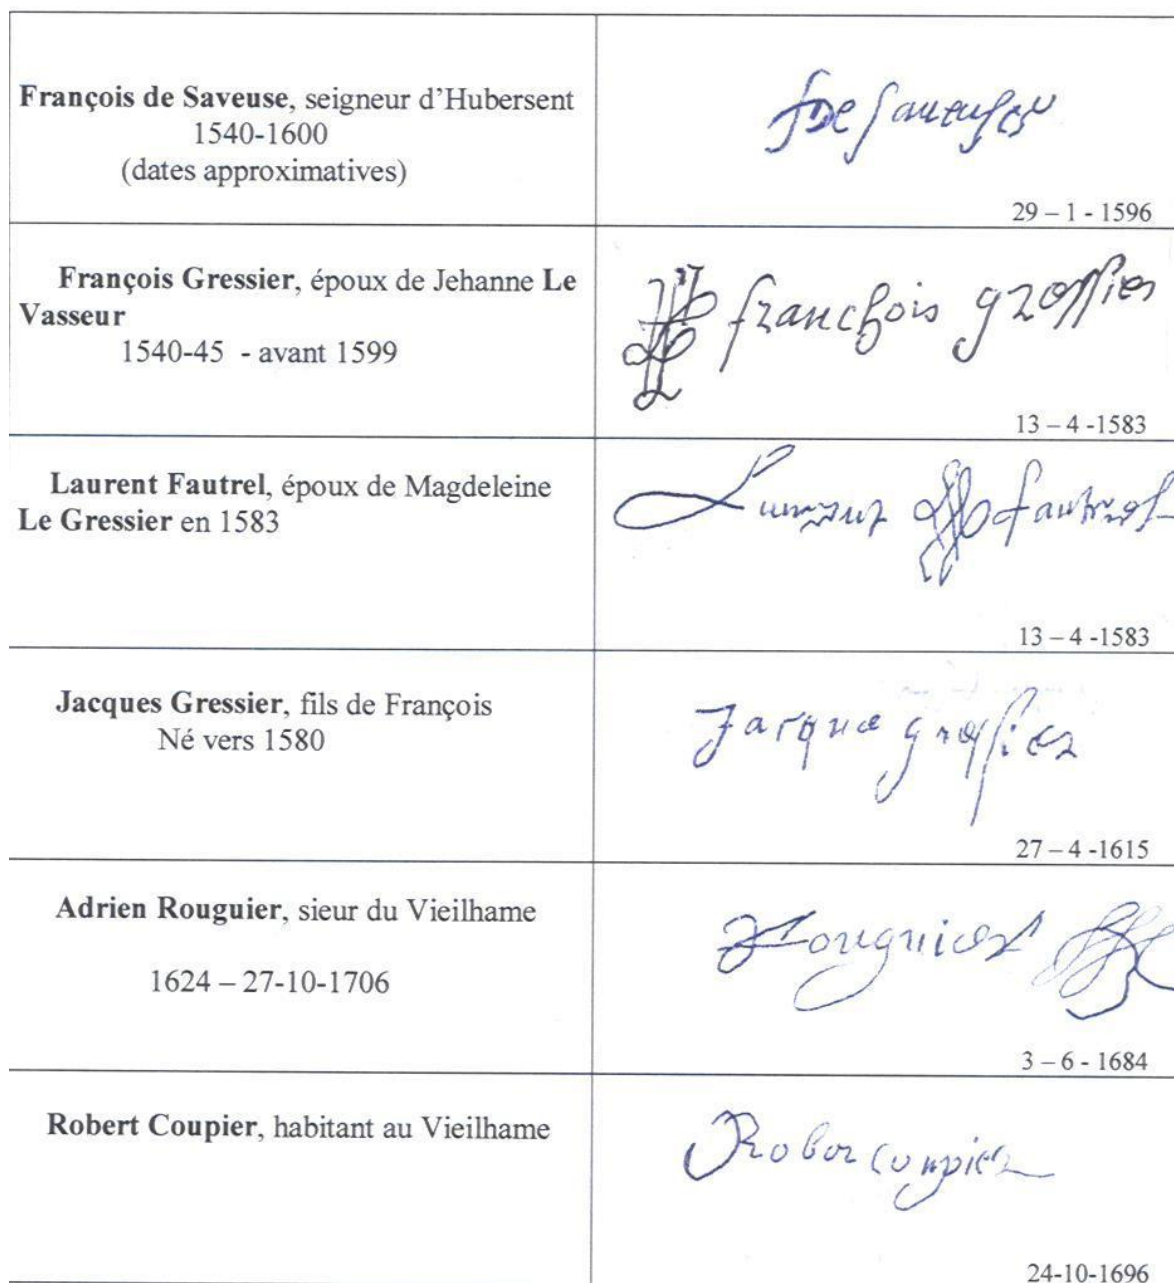 François de Saveuse, seigneur d'Hubersent
1540-1600
(dates approximatives)
29 – 1 - 1596
François Gressier, époux de Jehanne Le
Vasseur
1540-45 - avant 1599
franchois gressier
13 – 4 -1583
Laurent Fautrel, époux de Magdeleine
Le Gressier en 1583
Laurent fautrel
13 – 4 -1583
Jacques Gressier, fils de François
Né vers 1580
Jacque gressier
27 – 4 -1615
Adrien Rouguier, sieur du Vieilhame
1624 – 27-10-1706
Rouguier
3 – 6 - 1684
Robert Coupier, habitant au Vieilhame
Rober coupier
24-10-1696